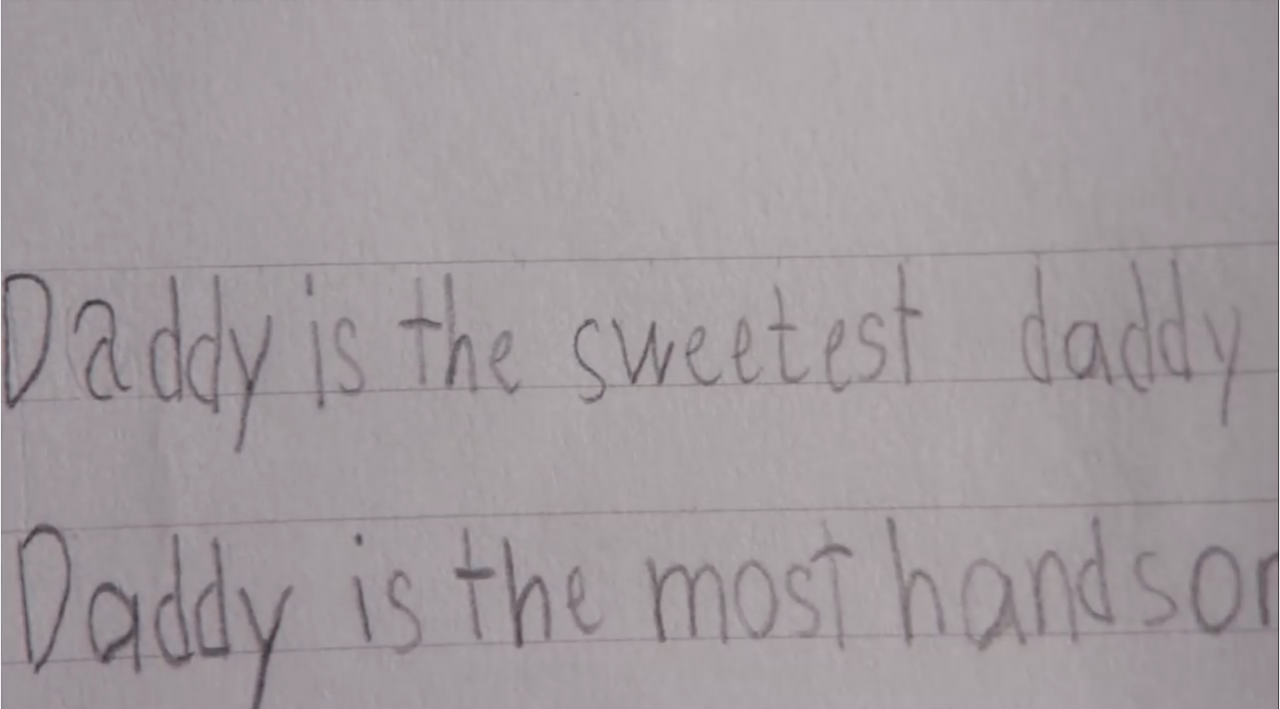 Daddy is the sweetest daddy
Daddy is the most handsom